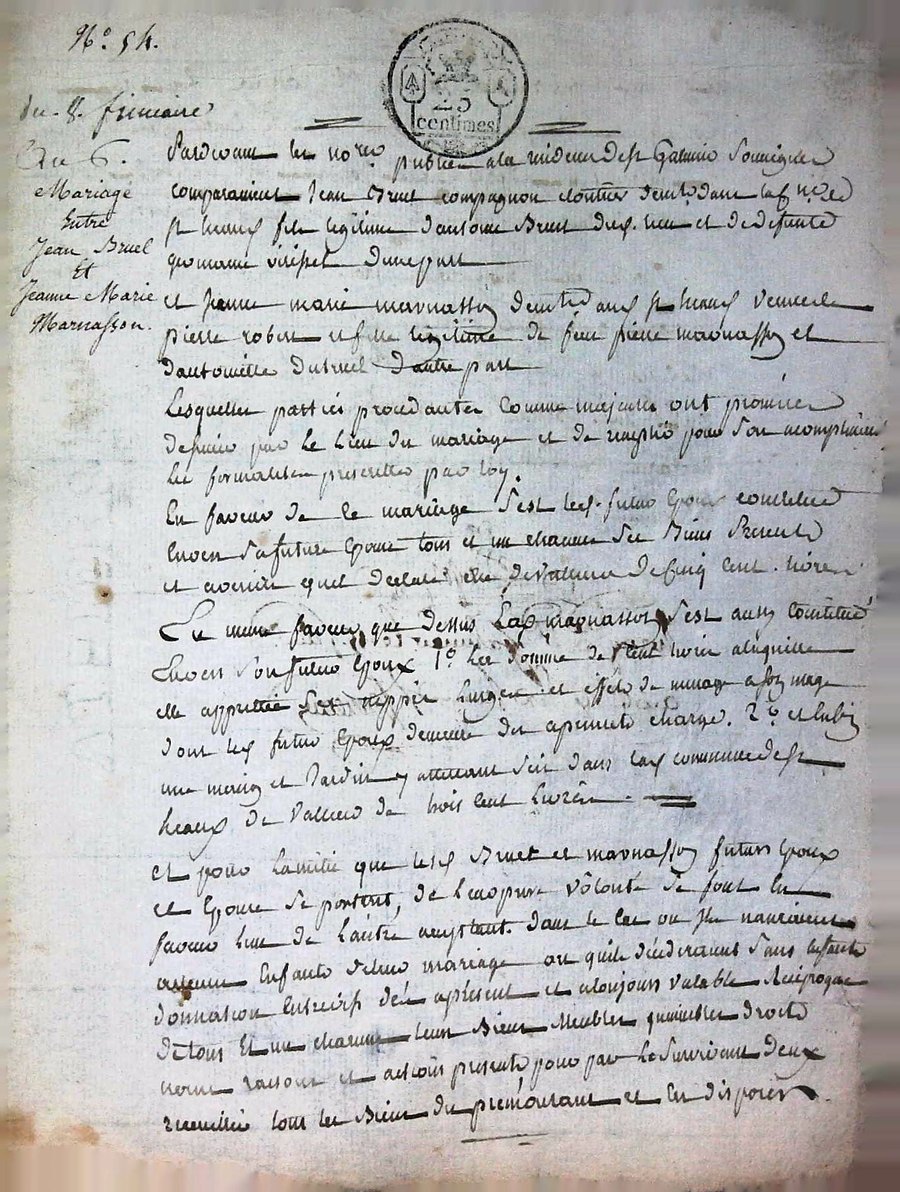 N.° 54.
25
centimes
du 8. frimaire
an 6.
Mariage
Entre
Jean Bruel
Et
Jeanne Marie
Marnasson.
Pardevant les no.res publics a la résidence de st Galmier soussignés
comparaissent Jean Bruel compagnon cloutier demt. dans la de
st heaux fils légitime d'antoine Bruel du lieu et de defunte
d'une part
et Jeanne marie marnasson demt. dans st heaux veuve de
pierre robert et fille légitime de feu pierre marnasson et
d'antoinette dutreuil d'autre part
Lesquelles parties procedantes comme majeures ont promis
par le lien du mariage et de remplir pour son accomplissement
les formalités prescrites par loy.
En faveur de ce mariage s'est led. futur Epoux constitué
Envers sa future Epouse tous et un chacuns ses Biens présents
et avenir quel declare etre de valleur de cinq cent livres
En meme faveur que dessus lad. marnasson s'est aussi constitué
Envers son futur Epoux 1.° la somme de cent livres a laquelle
elle apprecie ses nippes linges et effets de menage a son usage
dont led. futur Epoux demeure des apresent chargé. 2.° et enfin
une maison et Jardin y attenant scis dans lad. commune de st
heaux de valleur de trois cent livres.
et pour l'amitié que lesd. Bruel et marnasson futurs Epoux
et Epouse se portent, de leur pure volonté se font en
faveur l'un de l'autre acceptant. dans le cas ou ils n'auroient
aucun Enfants dud. mariage ou qu'ils décéderaient sans enfants
donnation Entrevifs dès apresent et atoujours valable Réciproque
de tous et un chacuns leurs Biens Meubles immeubles droits
noms raisons et actions presents pour par le survivant d'eux
recueillir tous les Biens du prémourant et en disposer.